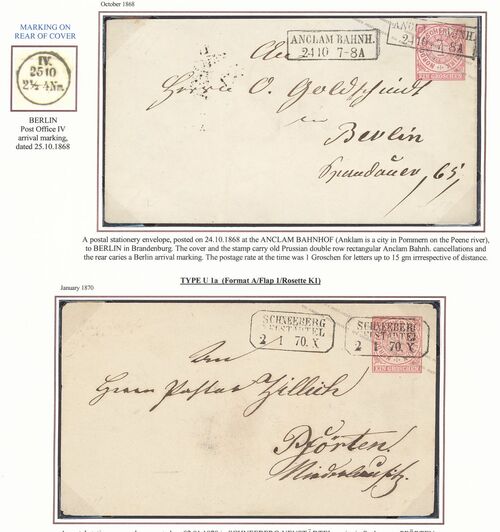 October 1868
MARKING ON
REAR OF COVER
IV.
25 10
2½-4 Nm.
BERLIN
Post Office IV
arrival marking,
dated 25.10.1868
ANCLAM BAHNH.
24 10 7-8A
ANCLAM BAHNH.
24 10 7-8A
EIN GROSCHEN
An
Herrn O. Goldschmidt
in
Berlin
Spandauer 65
A postal stationery envelope, posted on 24.10.1868 at the ANCLAM BAHNHOF (Anklam is a city in Pommern on the Peene river),
to BERLIN in Brandenburg. The cover and the stamp carry old Prussian double row rectangular Anclam Bahnh. cancellations and
the rear caries a Berlin arrival marking. The postage rate at the time was 1 Groschen for letters up to 15 gm irrrespective of distance.
TYPE U 1a (Format A/Flap 1/Rosette K1)
January 1870
SCHNEEBERG
NEUSTÄDTEL
2 1 70. X
SCHNEEBERG
NEUSTÄDTEL
2 1 70. X
EIN GROSCHEN
An
Herrn Pastor Zillich
Pförten.
Niederlausitz.